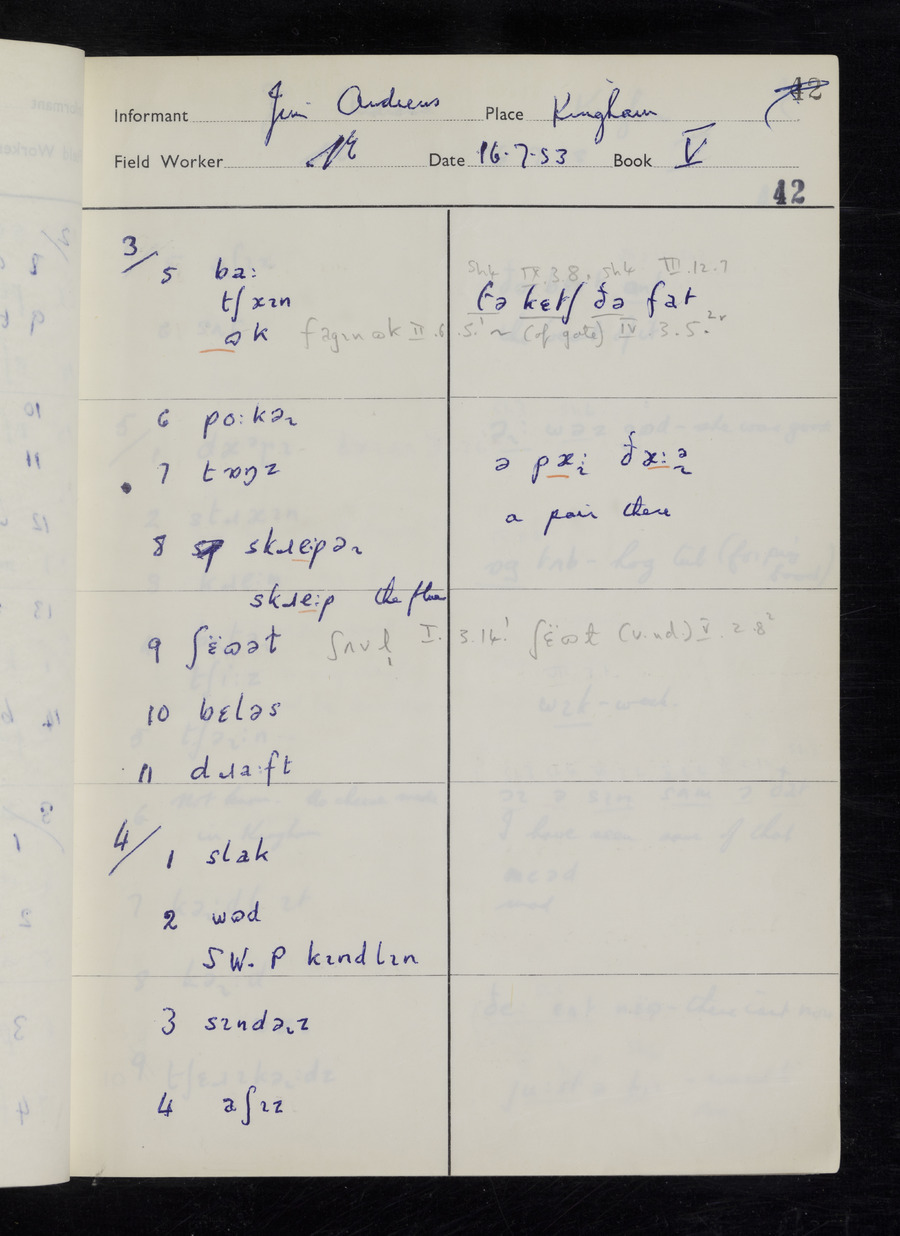 Informant Jim Andrews Place Kingham 42
Field Worker Date 16.7.53 Book V
42
3/ 5 ba:
tʃæɪn
ɷk fɪŋgɪn ɷk II.6.5.¹ ~ (of gate) IV.3.5.²ʳ
sh4 IX.3.8, sh4 VI.12.7
tə kɛtʃ ðə fat
6 po:kəɹ
7 tɒŋz
ə pæ:ɹ ðæ:əɹ
a pair there
8 skɹe:pəɹ
skɹe:p the flue
9 ʃɛ̈ɷət ʃʌvl̩ I.3.14.¹ ʃɛ̈ɷt (v. nd.) V.2.8²
10 bɛləs
11 dɹa:ft
4/ 1 slak
2 wɷd
S.W. P kɪndlɪn
3 sɪndəɹz
4 aʃɪz